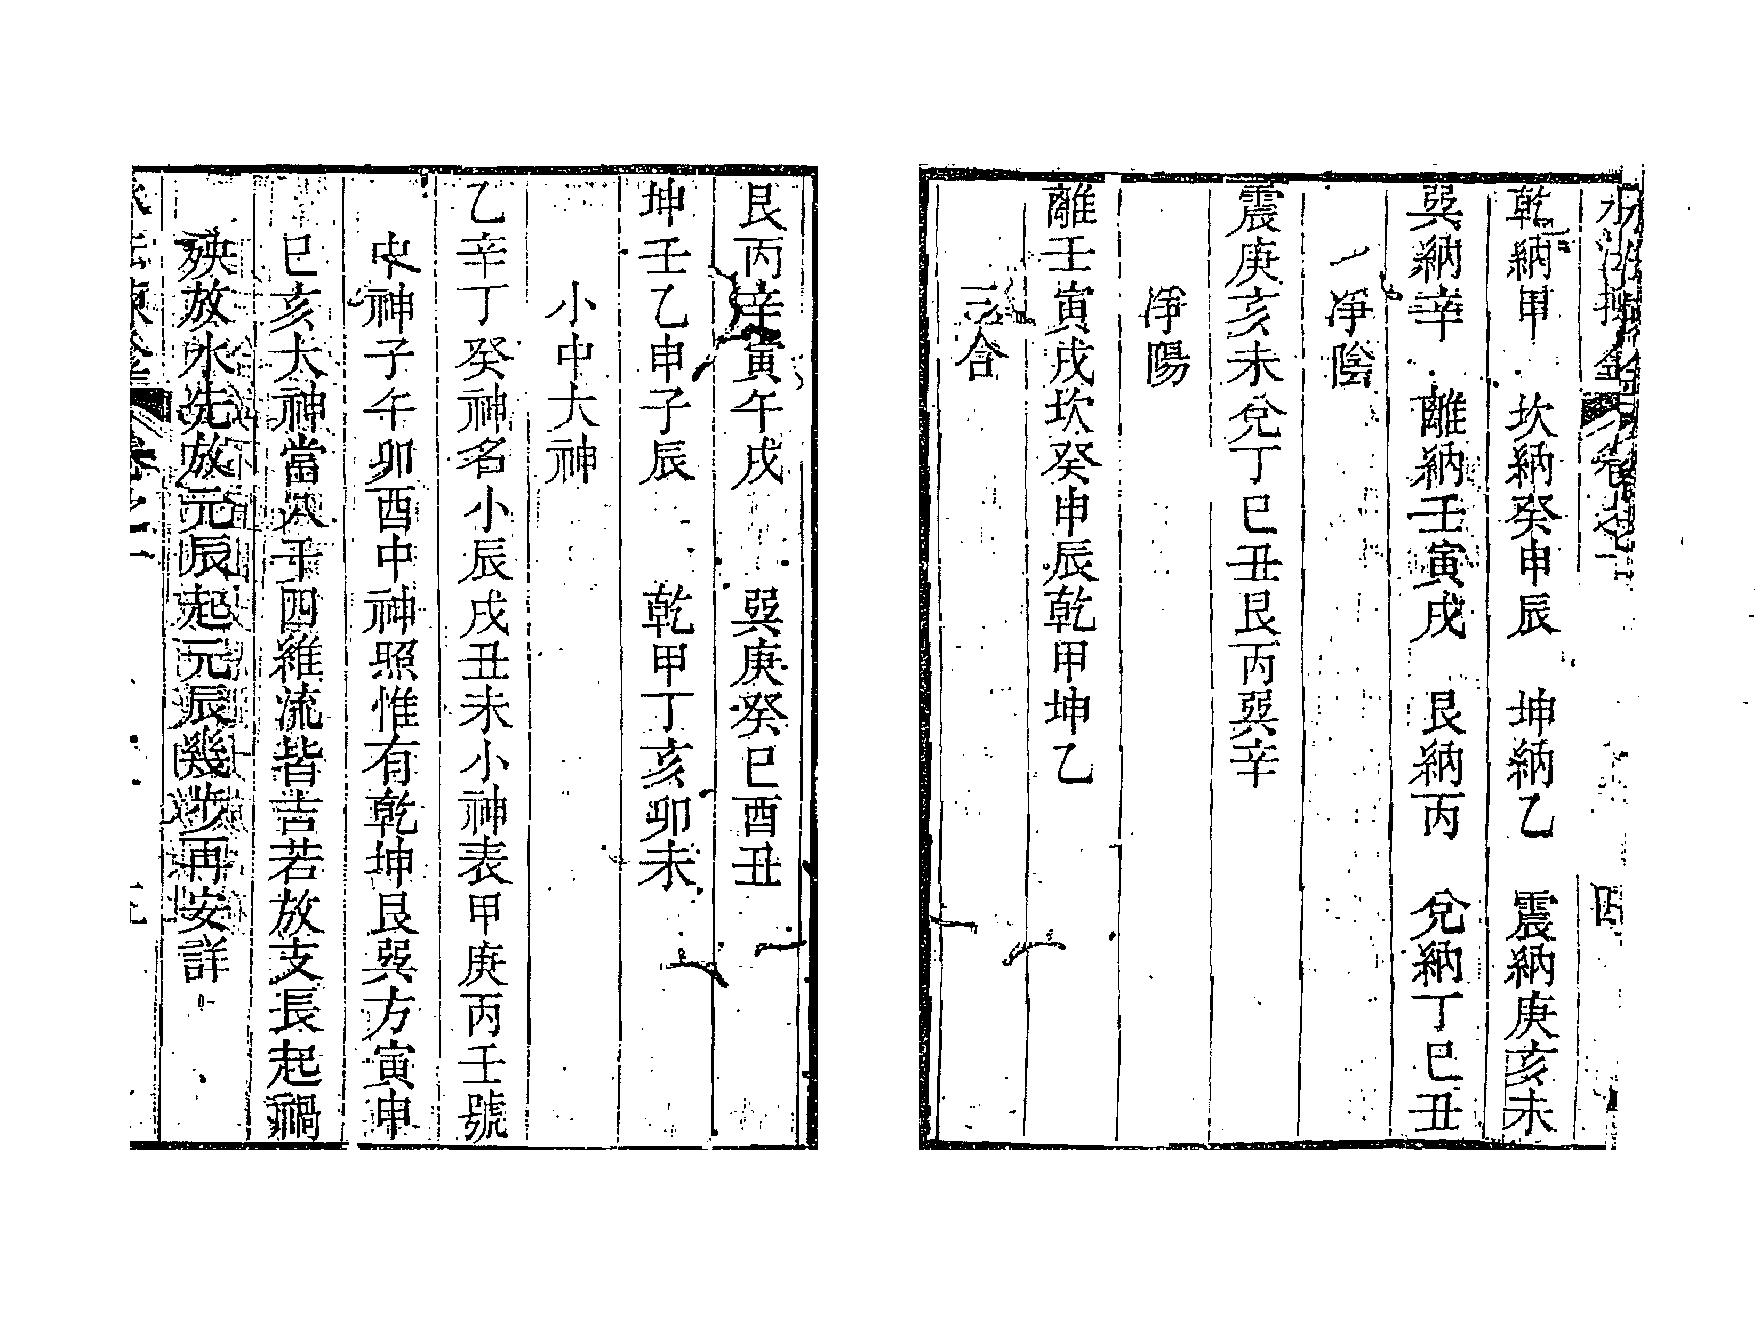 乾納甲　坎納癸申辰　坤納乙　震納庚亥未
巽納辛　離納壬寅戌　艮納丙　兌納丁巳丑
淨陰
震庚亥未兌丁巳丑艮丙巽辛
淨陽
離壬寅戌坎癸申辰乾甲坤乙
三合
艮丙辛寅午戌　巽庚癸巳酉丑
坤壬乙申子辰　乾甲丁亥卯未
小中大神
乙辛丁癸神名小辰戌丑未小神表甲庚丙壬號
中神子午卯酉中神照惟有乾坤艮巽方寅申
巳亥大神當八干四維流皆吉若放支長起禍
殃放水先放元辰起元辰幾步再安詳